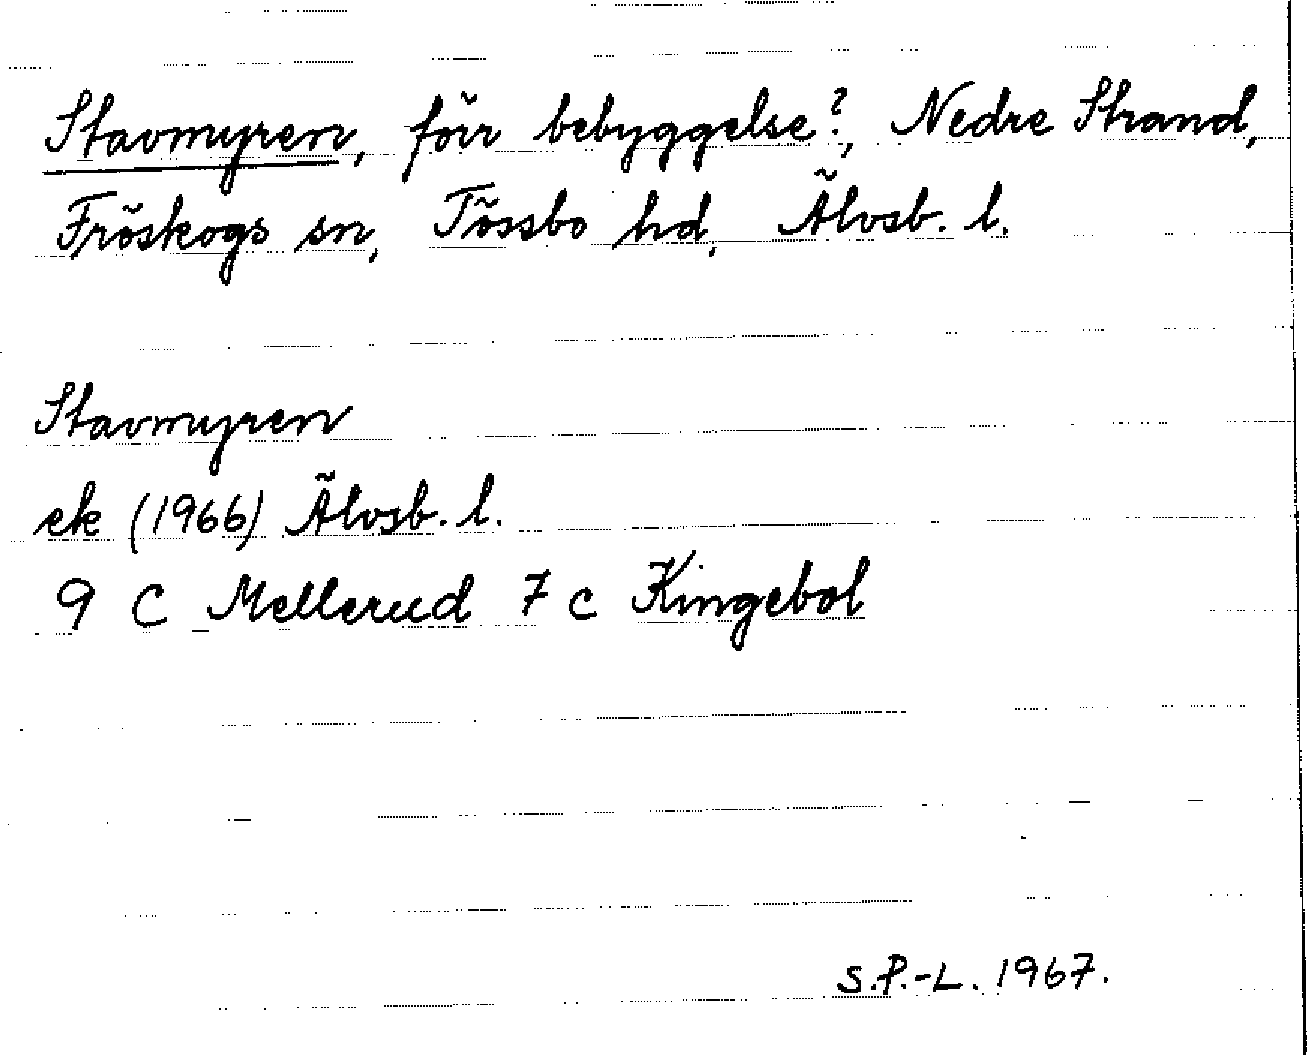 Stavmyren, förr bebyggelse?, Nedre Strand,
Fröskogs sn, Tössbo hd, Älvsb. l.
Stavmyren
ek (1966) Älvsb. l.
9 C Mellerud 7 c Kingebol
S.P.-L. 1967.